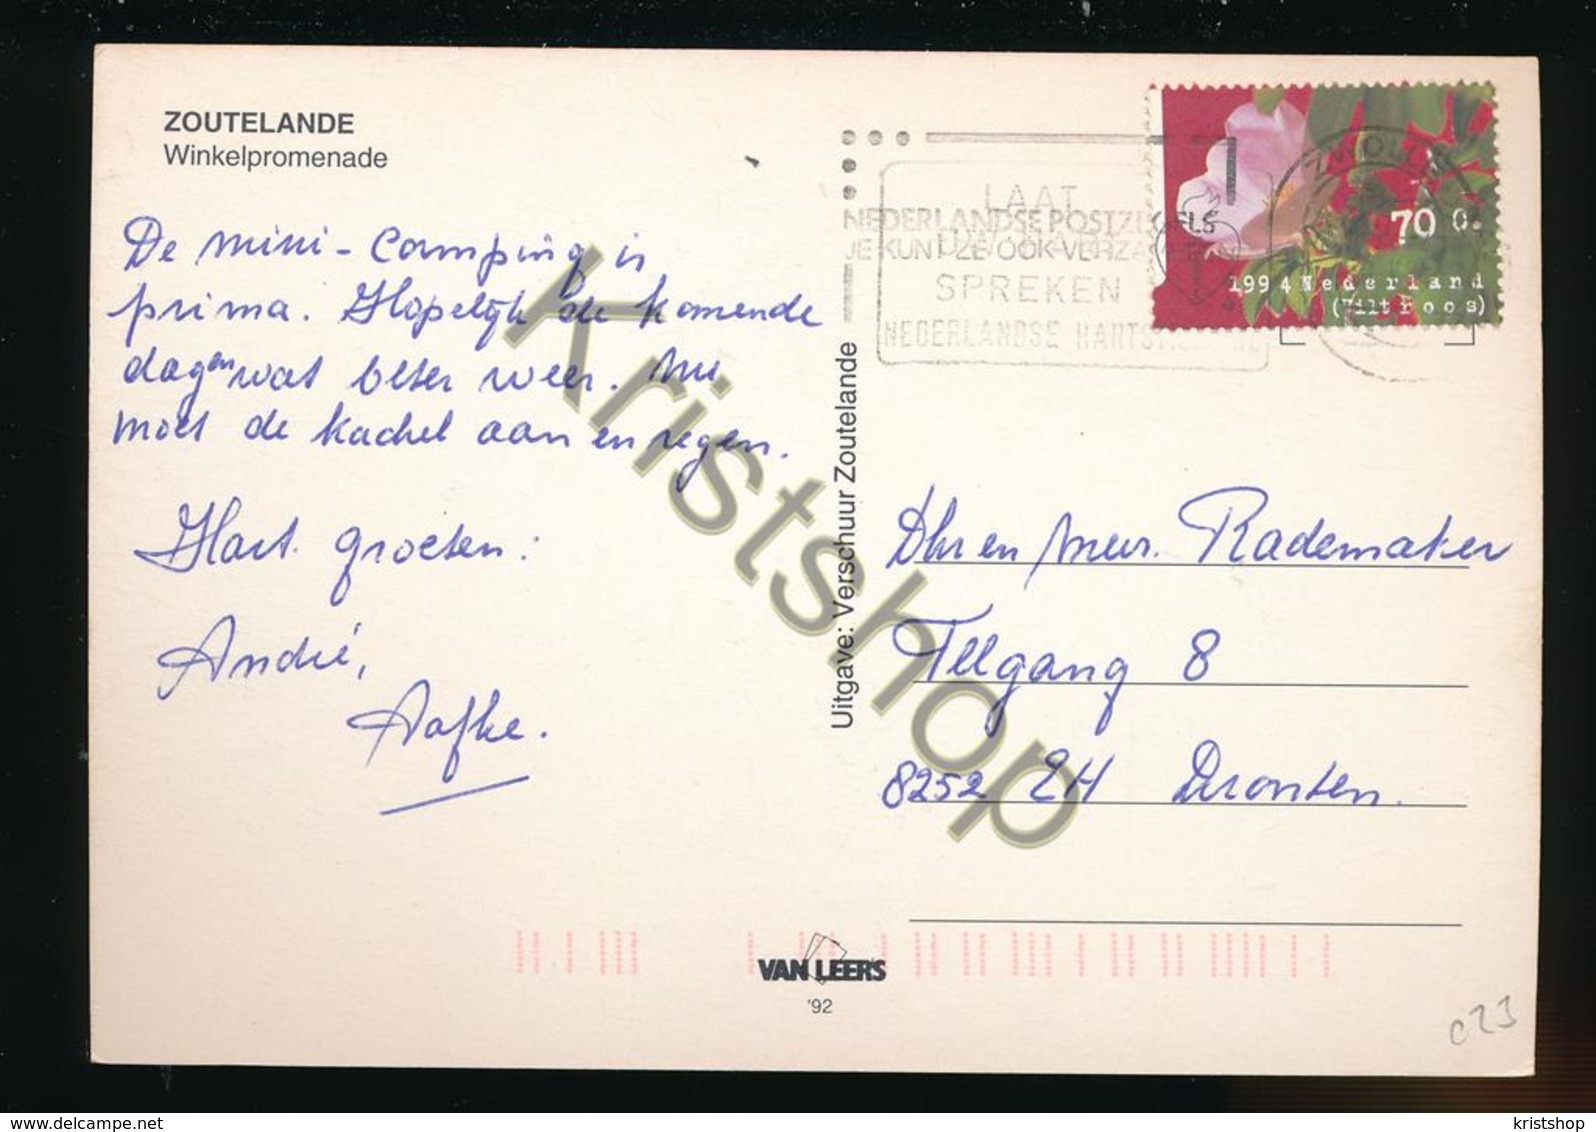 ZOUTELANDE
Winkelpromenade
De mini-camping is
prima. Hopelijk de komende
dagen wat beter weer. Nu
moet de kachel aan en regen.
Hart. groeten:
André,
Aafke.
Uitgave: Verschuur Zoutelande
LAAT
NEDERLANDSE POSTZEGELS
JE KUNT ZE OOK VERZAMELEN
SPREKEN
NEDERLANDSE HARTSTICHTING
ZWOLLE
70 0.
1994 Nederland
(Viltroos)
Dhr en Mevr. Rademaker
Telgang 8
8252 EH Dronten.
VAN LEER'S
'92
c23
Kristshop
www.delcampe.net
kristshop